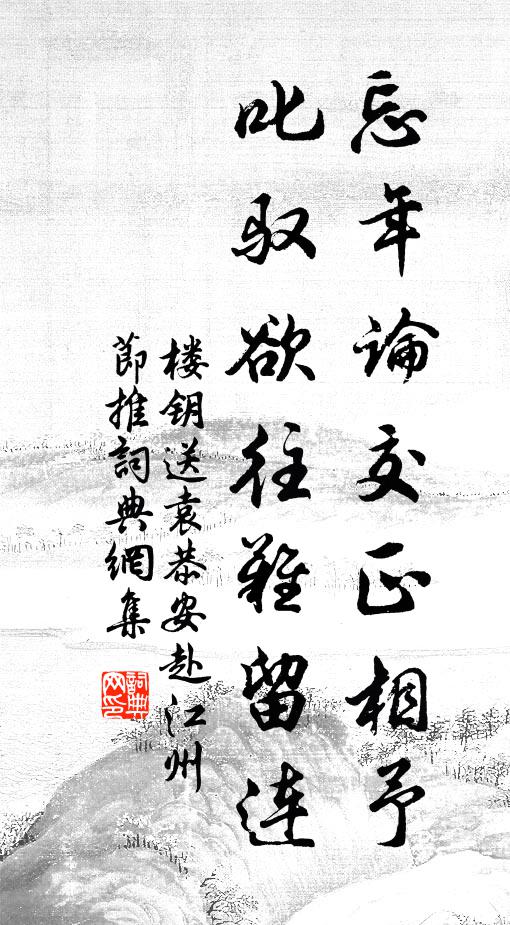 忘年論交正相予
叱驭欲往難留連
楼钥送袁恭安赴江州
節推詞典網集
詞典网印